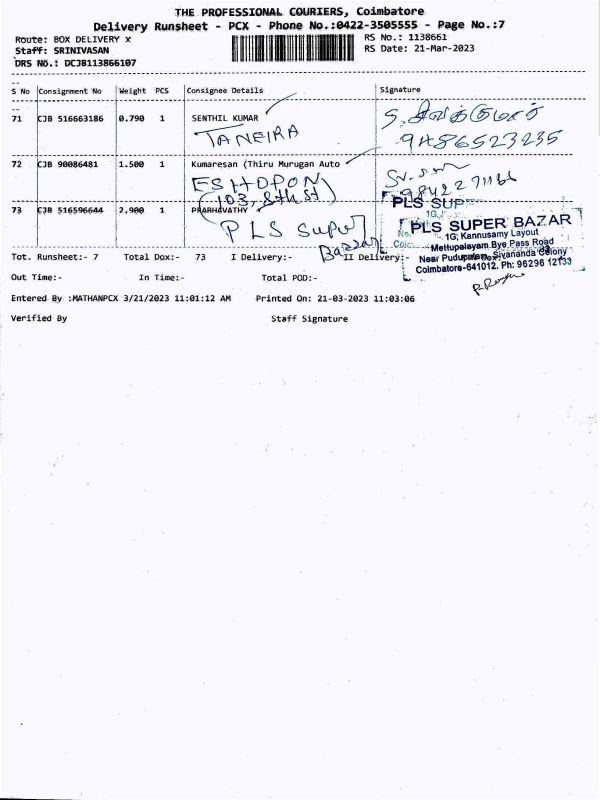 THE PROFESSIONAL COURIERS, Coimbatore
Delivery Runsheet - PCX - Phone No.:0422-3505555 - Page No.:7
Route: BOX DELIVERY x
RS No.: 1138661
Staff: SRINIVASAN
RS Date: 21-Mar-2023
DRS No.: DCJB113866107
S No Consignment No Weight PCS Consignee Details Signature
71 CJB 516663186 0.790 1 SENTHIL KUMAR
TANEIRA
9486523235
72 CJB 90086481 1.500 1 Kumaresan (Thiru Murugan Auto
(103, 8th St)
73 CJB 516596644 2.900 1 PRABHAVATHY
PLS Super
Bazzar
PLS SUP
PLS SUPER BAZAR
1G, Kannusamy Layout
Mettupalayam Bye Pass Road
Near Pudupalam, Sivananda Colony
Coimbatore-641012. Ph: 96296 12133
Tot. Runsheet:- 7 Total Dox:- 73 I Delivery:- II Delivery:-
Out Time:- In Time:- Total POD:-
Entered By :MATHANPCX 3/21/2023 11:01:12 AM Printed On: 21-03-2023 11:03:06
Verified By Staff Signature